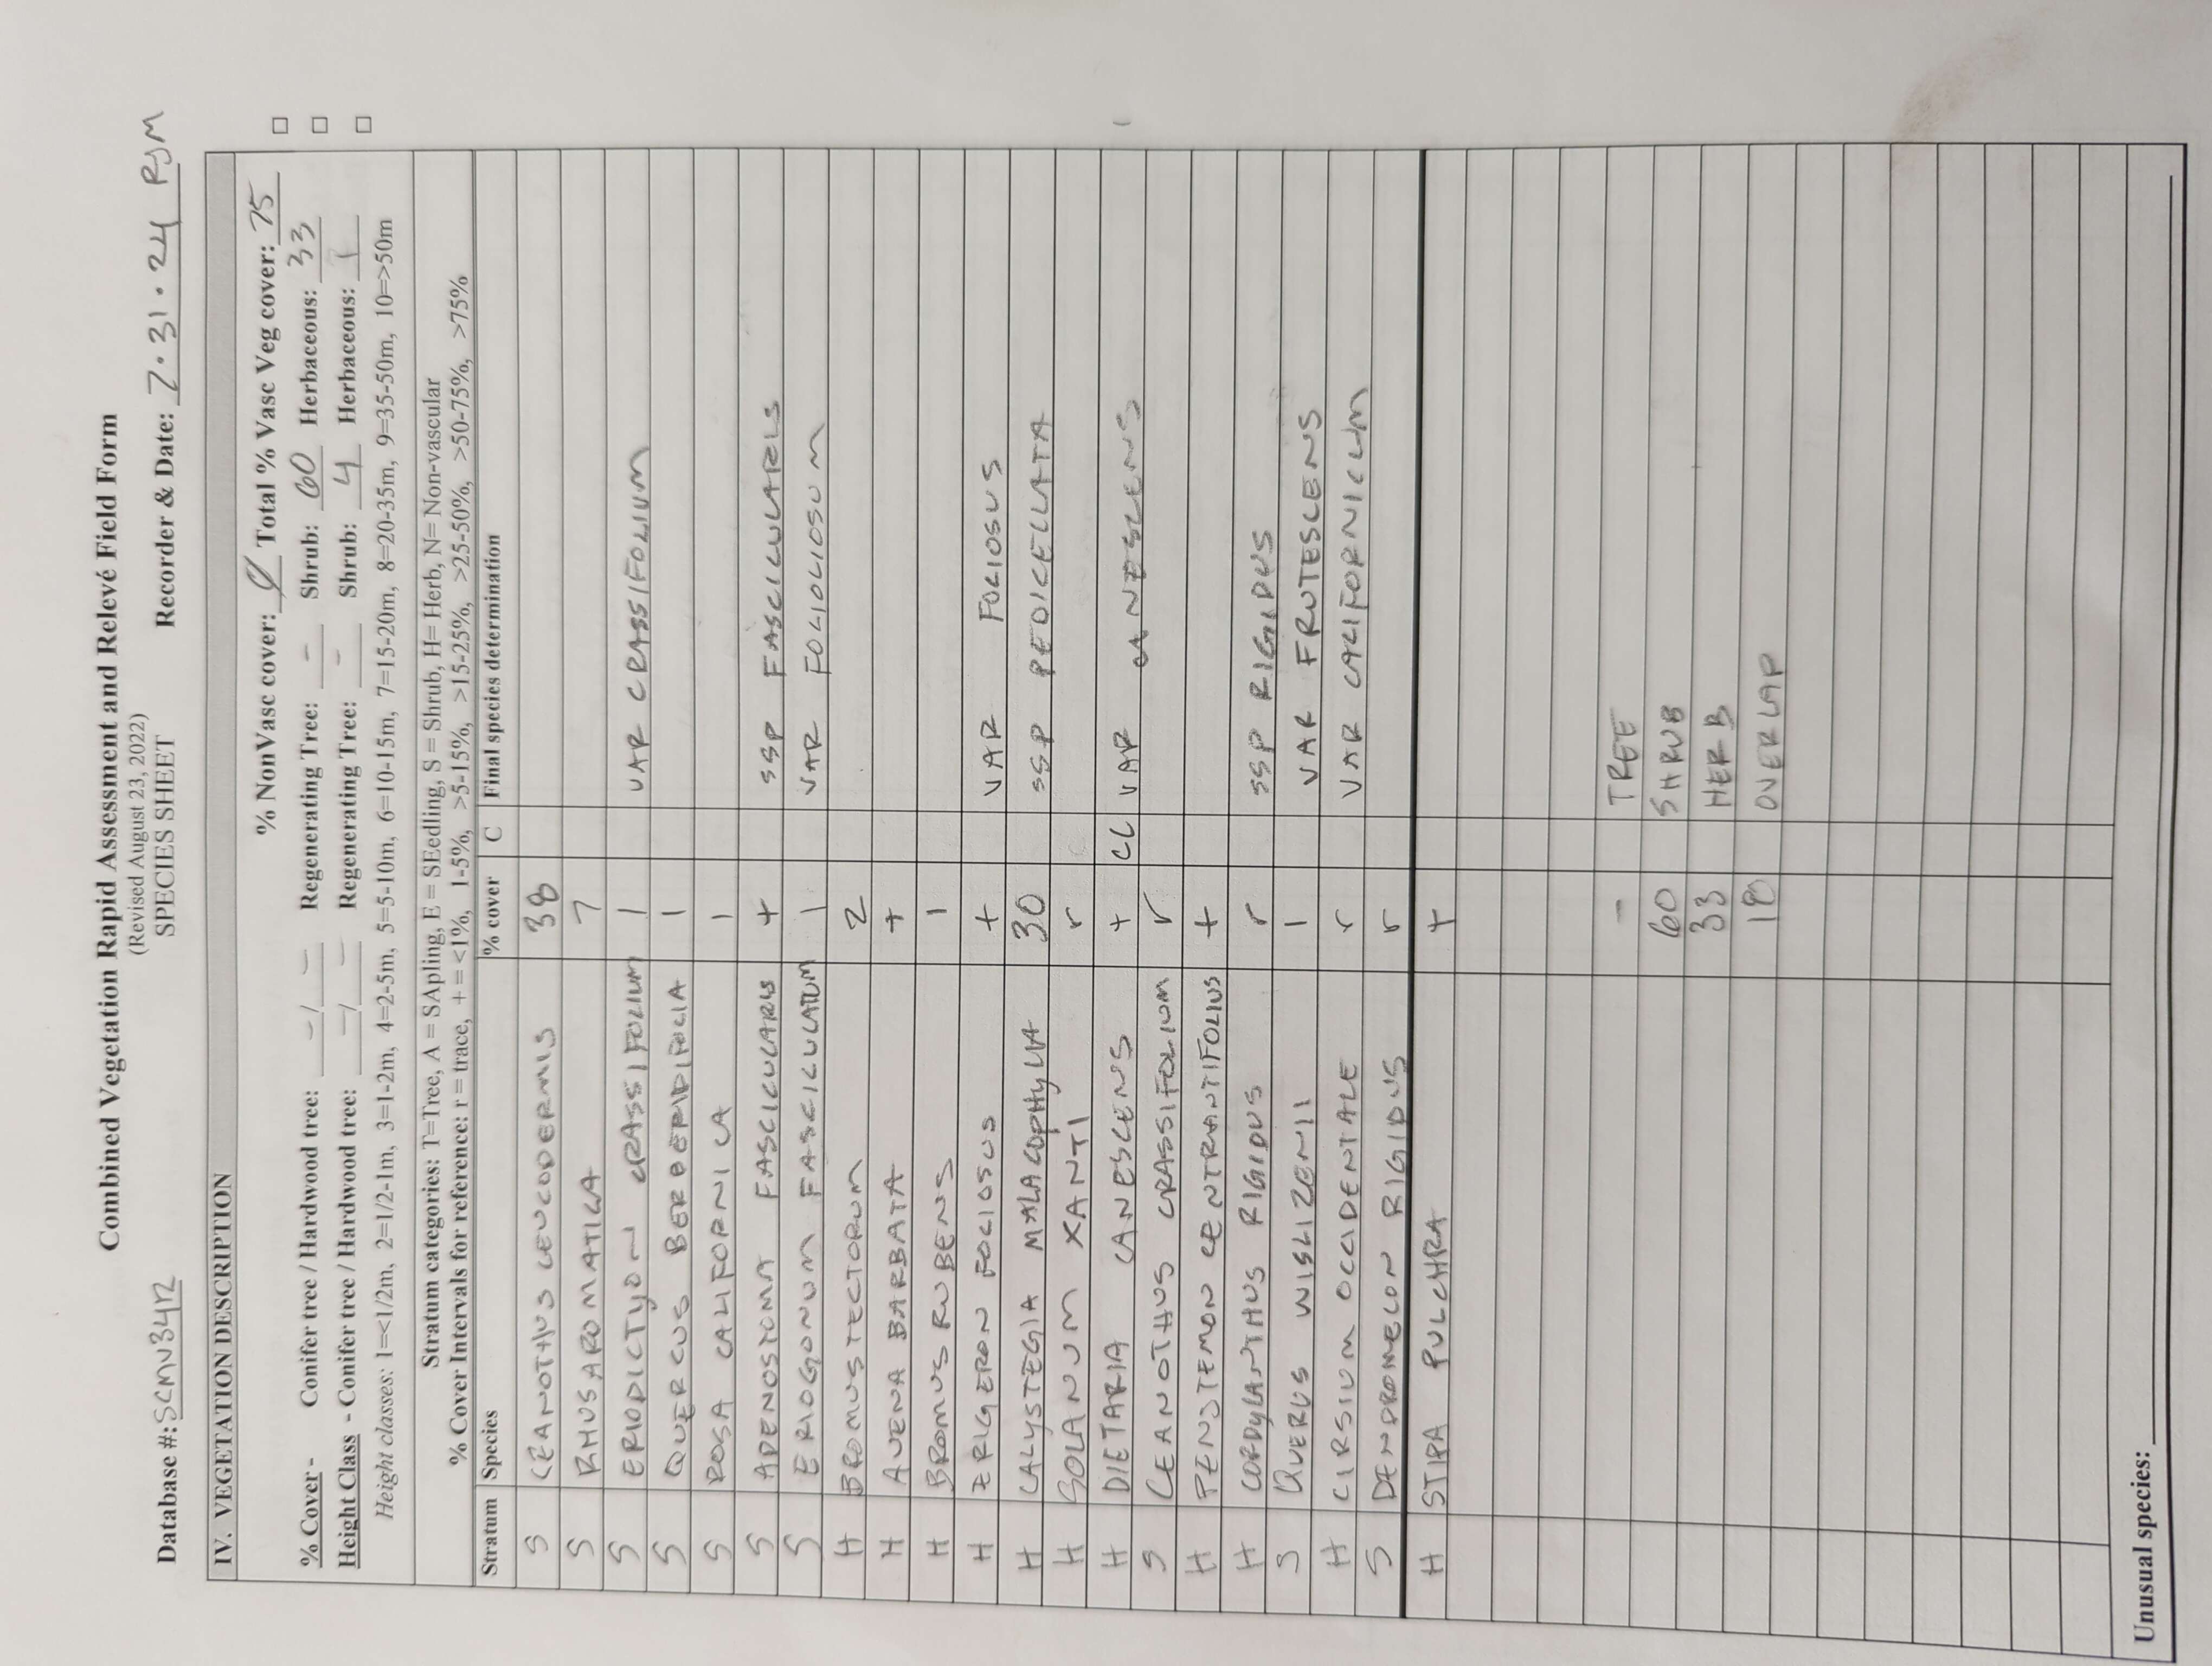 Combined Vegetation Rapid Assessment and Relevé Field Form
(Revised August 23, 2022)
Database #: SCMV3412 SPECIES SHEET Recorder & Date: 7.31.24 RJM
IV. VEGETATION DESCRIPTION
% NonVasc cover: Ø Total % Vasc Veg cover: 75 □
% Cover - Conifer tree / Hardwood tree: - / - Regenerating Tree: - Shrub: 60 Herbaceous: 33 □
Height Class - Conifer tree / Hardwood tree: - / - Regenerating Tree: - Shrub: 4 Herbaceous: 1 □
Height classes: 1=<1/2m, 2=1/2-1m, 3=1-2m, 4=2-5m, 5=5-10m, 6=10-15m, 7=15-20m, 8=20-35m, 9=35-50m, 10=>50m
Stratum categories: T=Tree, A = SApling, E = SEedling, S = Shrub, H= Herb, N= Non-vascular
% Cover Intervals for reference: r = trace, + = <1%, 1-5%, >5-15%, >15-25%, >25-50%, >50-75%, >75%
Stratum Species % cover C Final species determination
S CEANOTHUS LEUCODERMIS 38
S RHUS AROMATICA 7
S ERIODICTYON CRASSIFOLIUM 1 VAR CRASSIFOLIUM
S QUERCUS BERBERIDIFOLIA 1
S ROSA CALIFORNICA 1
S ADENOSTOMA FASCICULARIS + SSP FASCICULARIS
S ERIOGONUM FASCICULATUM 1 VAR FOLIOLIOSUM
H BROMUS TECTORUM 2
H AVENA BARBATA +
H BROMUS RUBENS 1
H ERIGERON FOLIOSUS + VAR FOLIOSUS
H CALYSTEGIA MALACOPHYLLA 30 SSP PEDICELLATA
H SOLANUM XANTI r
H DIETARIA CANESCENS + CL VAR CANESCENS
S CEANOTHUS CRASSIFOLIUM r
H PENSTEMON CENTRANTIFOLIUS +
H CORDYLANTHUS RIGIDUS r SSP RIGIDUS
S QUERUS WISLIZENII 1 VAR FRUTESCENS
H CIRSIUM OCCIDENTALE r VAR CALIFORNICUM
S DENDROMECON RIGIDUS r
H STIPA PULCHRA +
- TREE
60 SHRUB
33 HERB
18 OVERLAP
Unusual species: